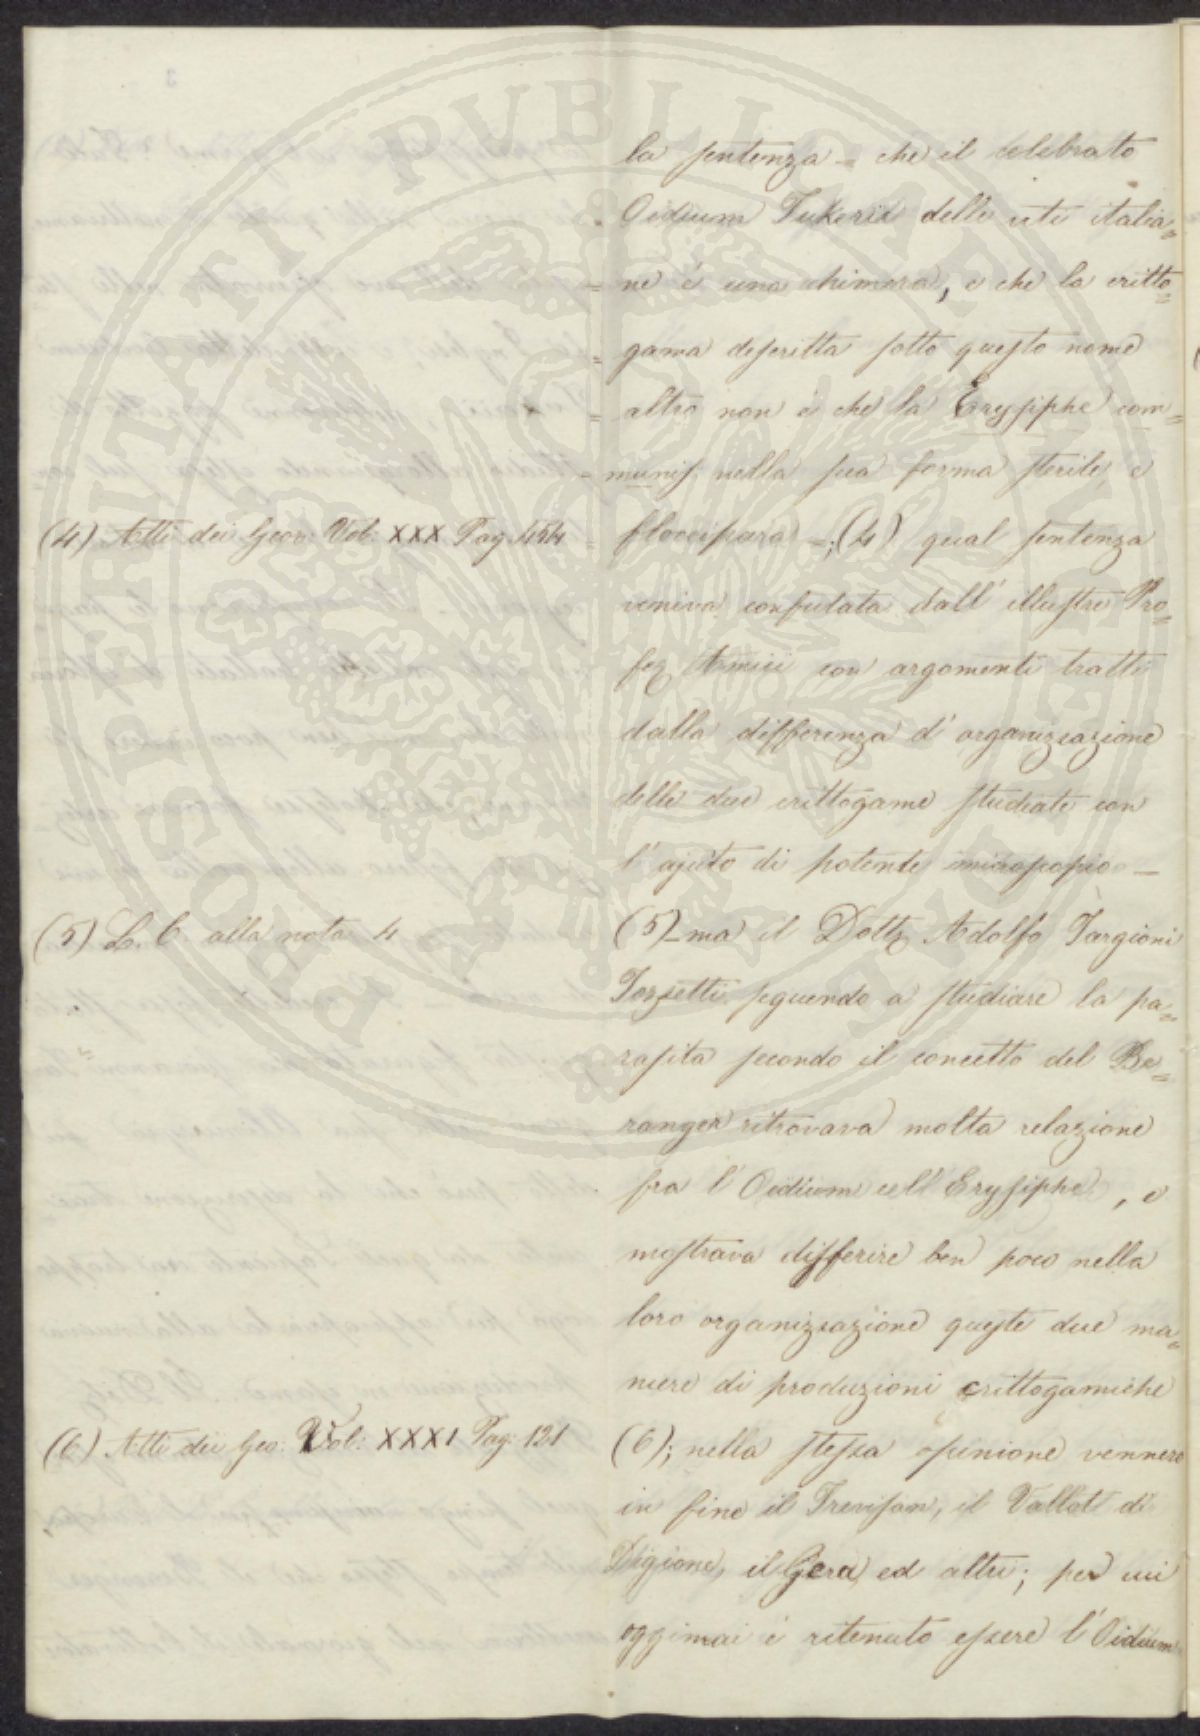 la sentenza = che il celebrato
Oidium Tukerii delle viti italia=
= ne è una chimera, e che la critto=
= gama descritta sotto questo nome
= altro non è che la Erysiphe com=
= munis nella sua forma sterile, e
(4) Atti dei Geor: Vol: XXX Pag. 454
= floccipara =; (4) qual sentenza
veniva confutata dall' illustre Pro=
fes Amici con argomenti tratti
dalla differenza d' organizzazione
delle due crittogame studiate con
l' ajuto di potente microscopio —
(5) L. C. alla nota 4
(5) ma il Dott Adolfo Targioni
Tozzetti seguendo a studiare la pa=
rasita secondo il concetto del Be=
ranger ritrovava molta relazione
fra l' Oidium e l' Erysiphe, e
mostrava differire ben poco nella
loro organizzazione queste due ma=
niere di produzioni crittogamiche
(6) Atti dei Geo: Vol: XXXI Pag: 121
(6); nella stessa opinione vennero
in fine il Trevisan, il Vallot di
Digione, il Gera, ed altri; per cui
oggimai è ritenuto essere l' Oidium
PROSPERITATI PUBLICAE AUGENDAE